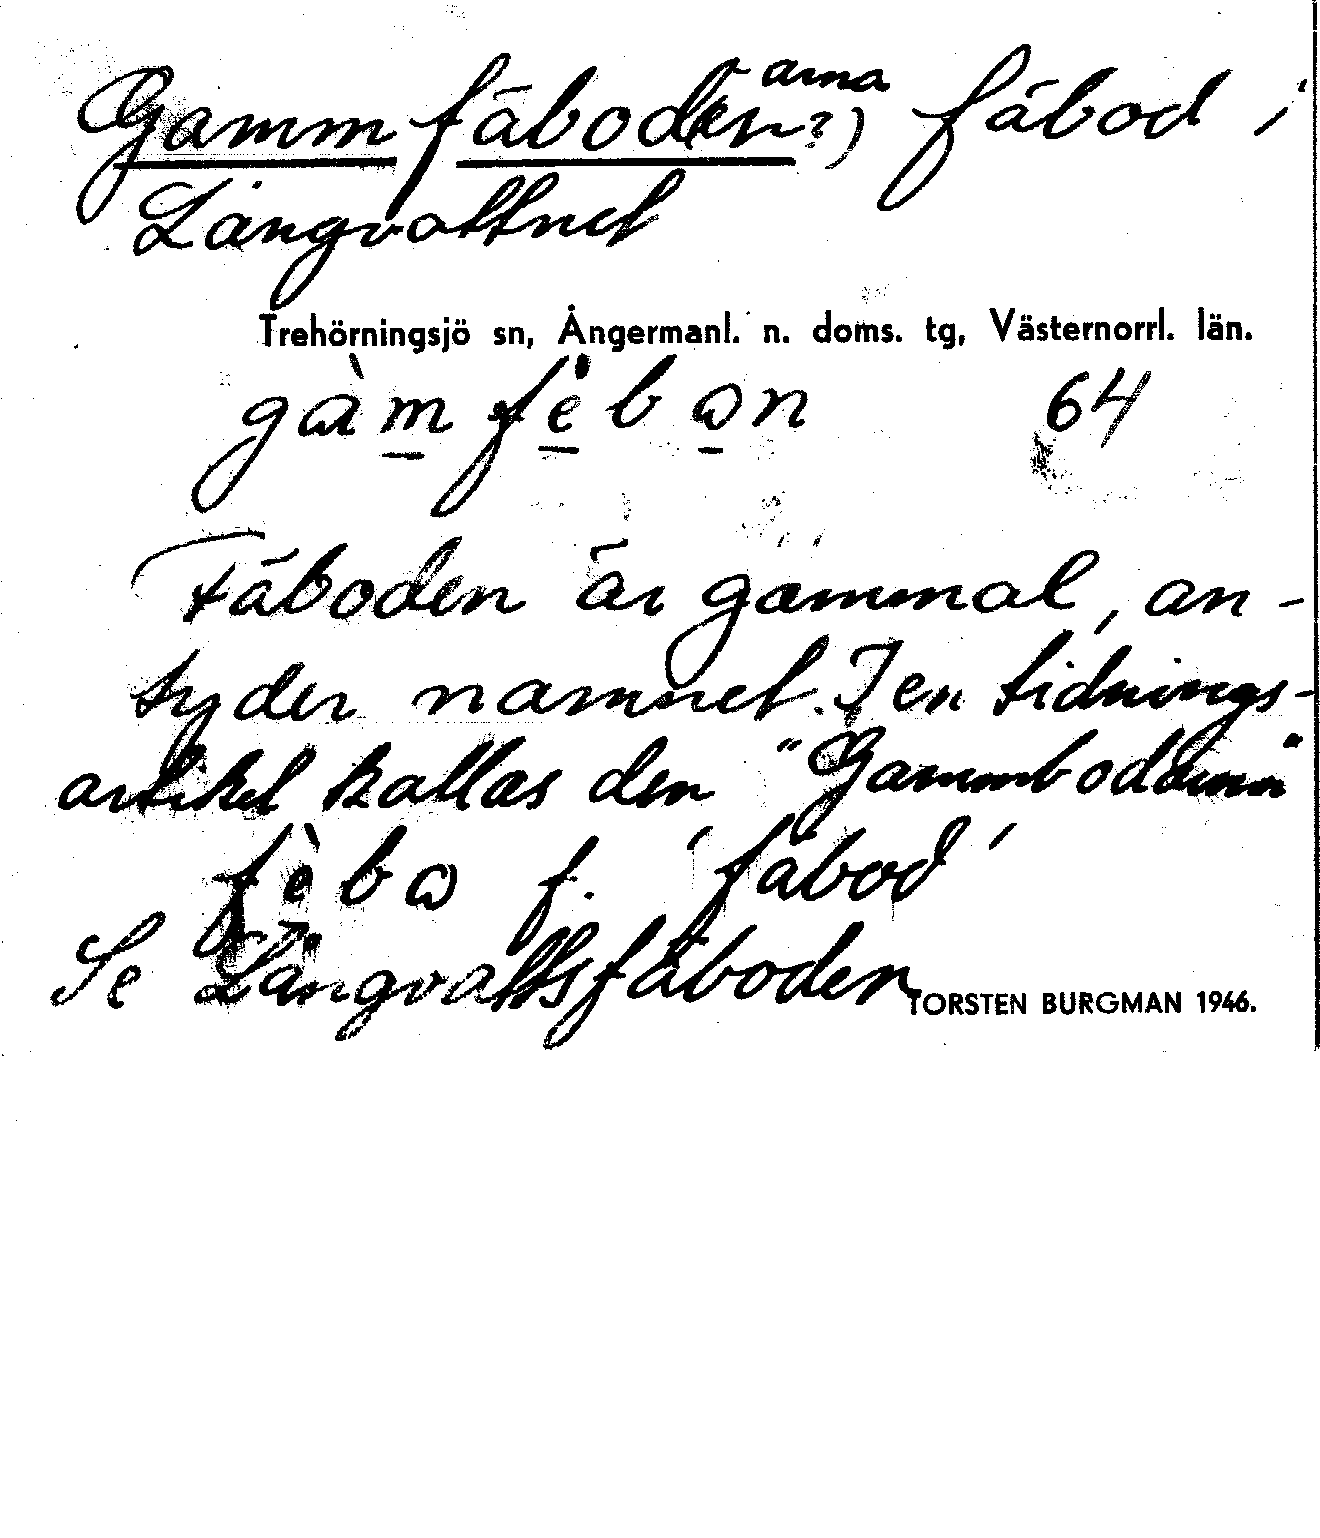 Gammfäboden (-arna?) fäbod i
Långvattnet
Trehörningsjö sn, Ångermanl. n. doms. tg, Västernorrl. län.
gàmfèbɷn 64
Fäboden är gammal, an-
tyder namnet. I en tidnings-
artikel kallas den "Gammbodarna"
fèbɷ f. 'fäbod'
Se Långvattsfäboden
TORSTEN BURGMAN 1946.